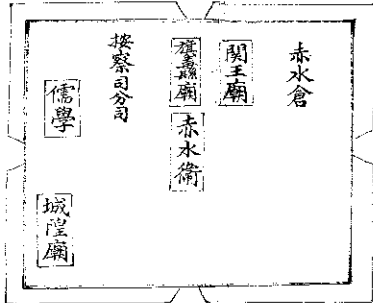 赤水倉
関王廟
旗纛廟
赤水衞
按察司分司
儒學
城隍廟